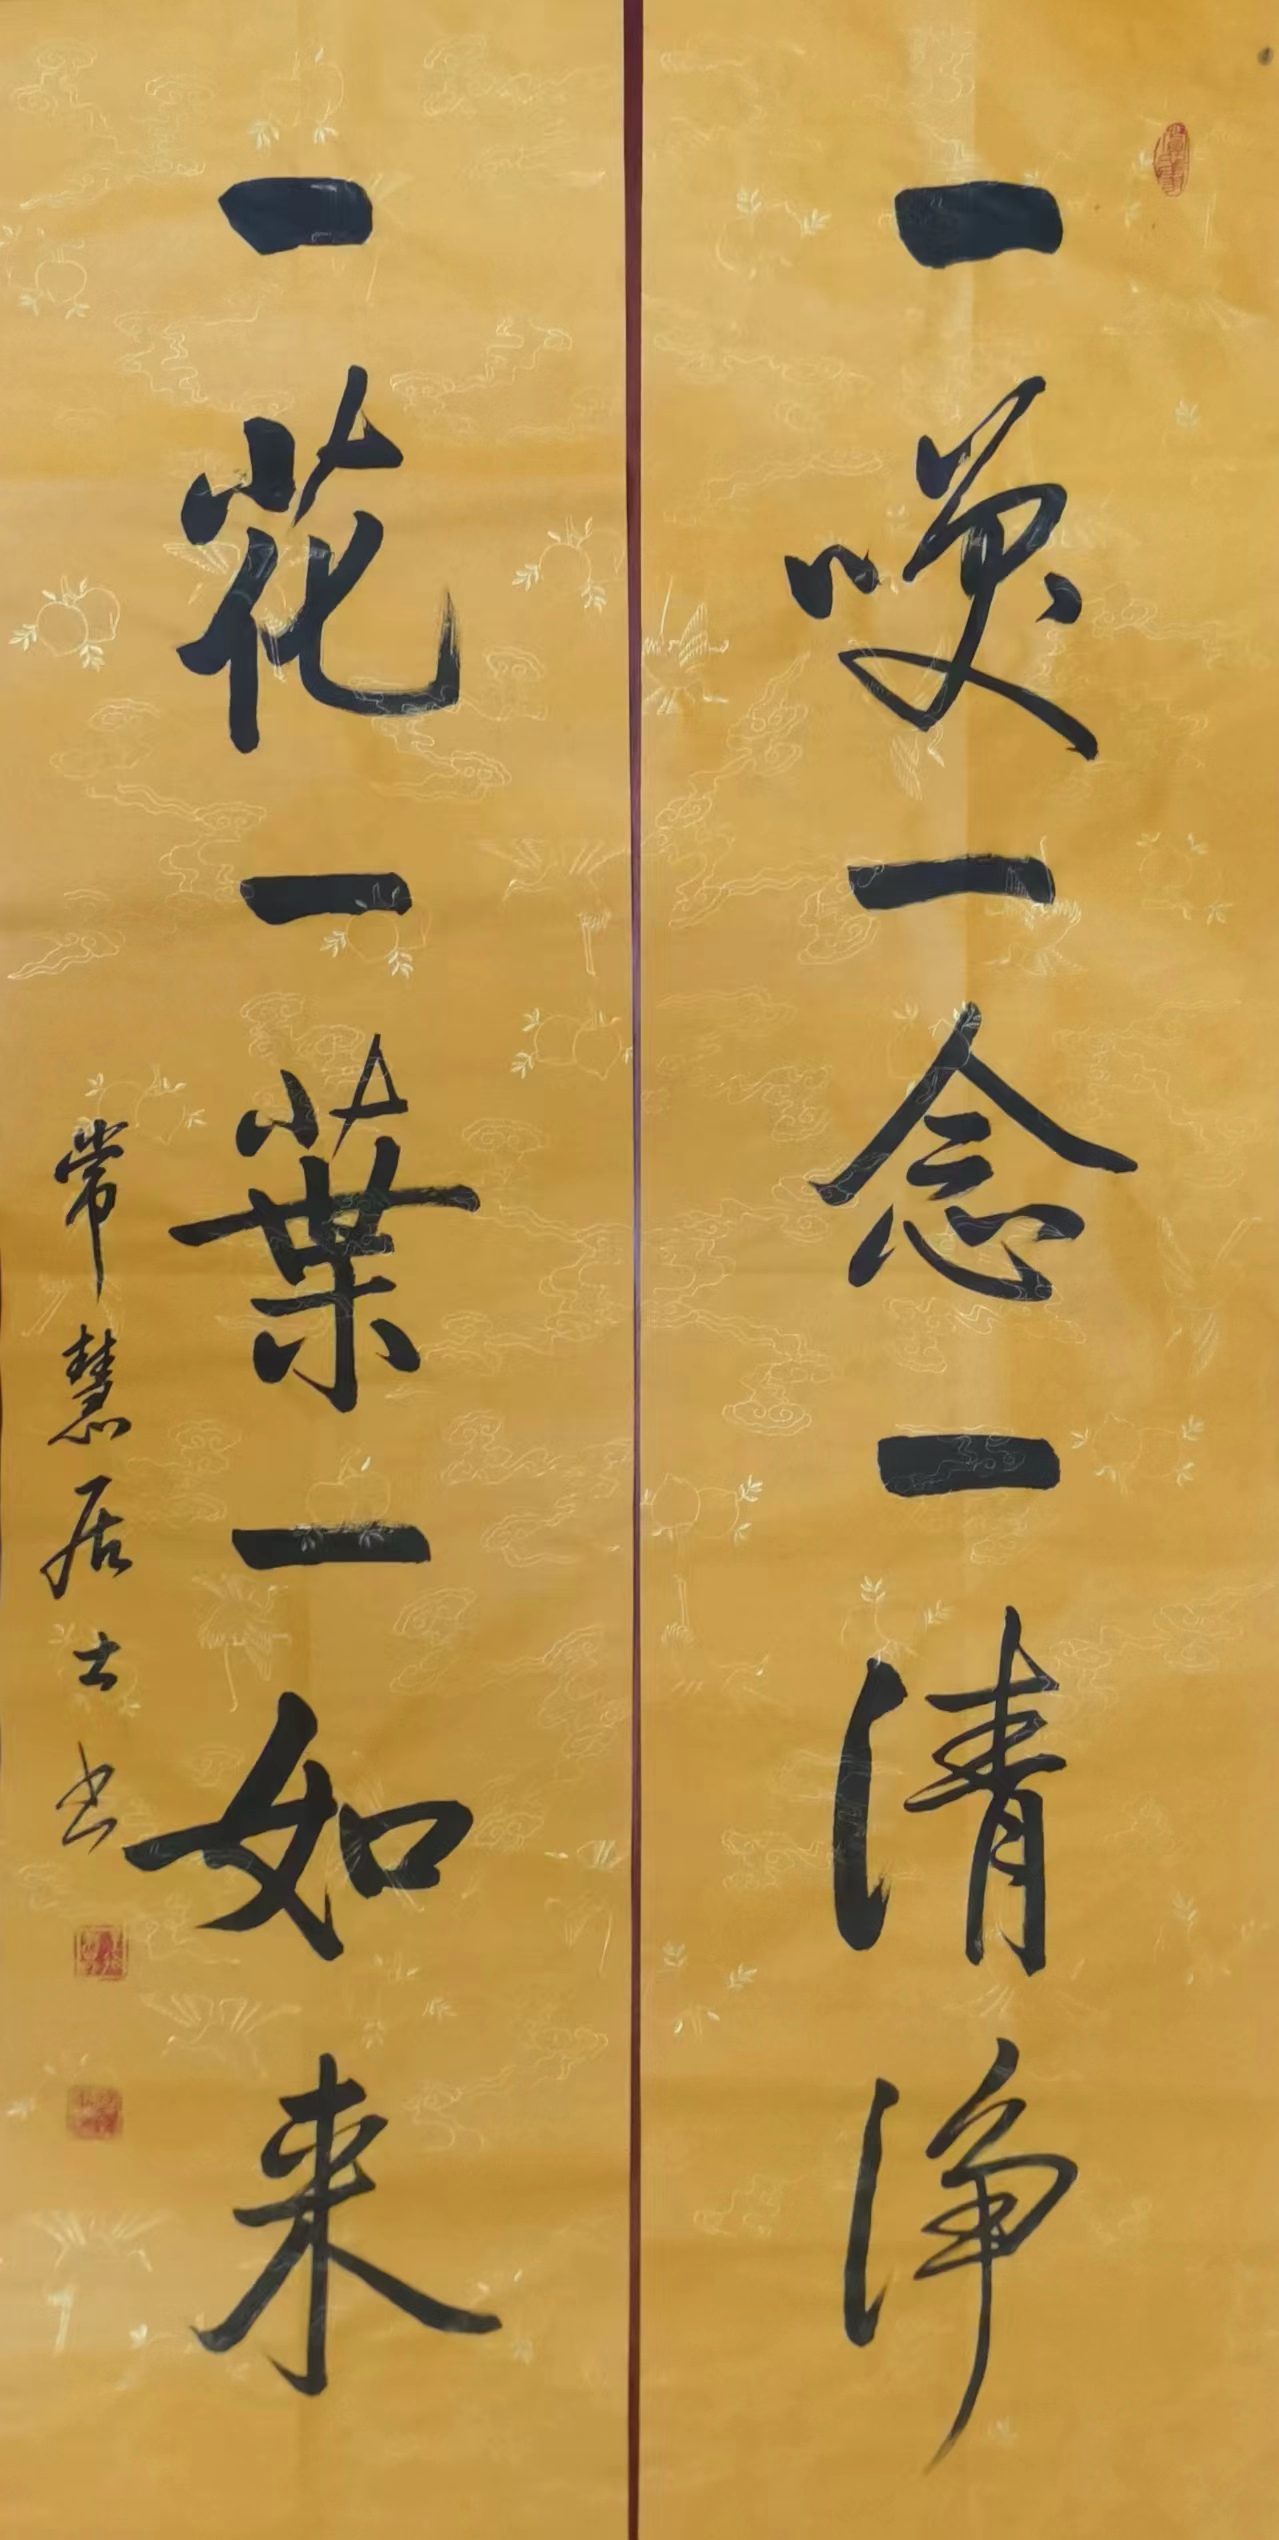 一一念一清净
一花一葉一如来
常慧居士书